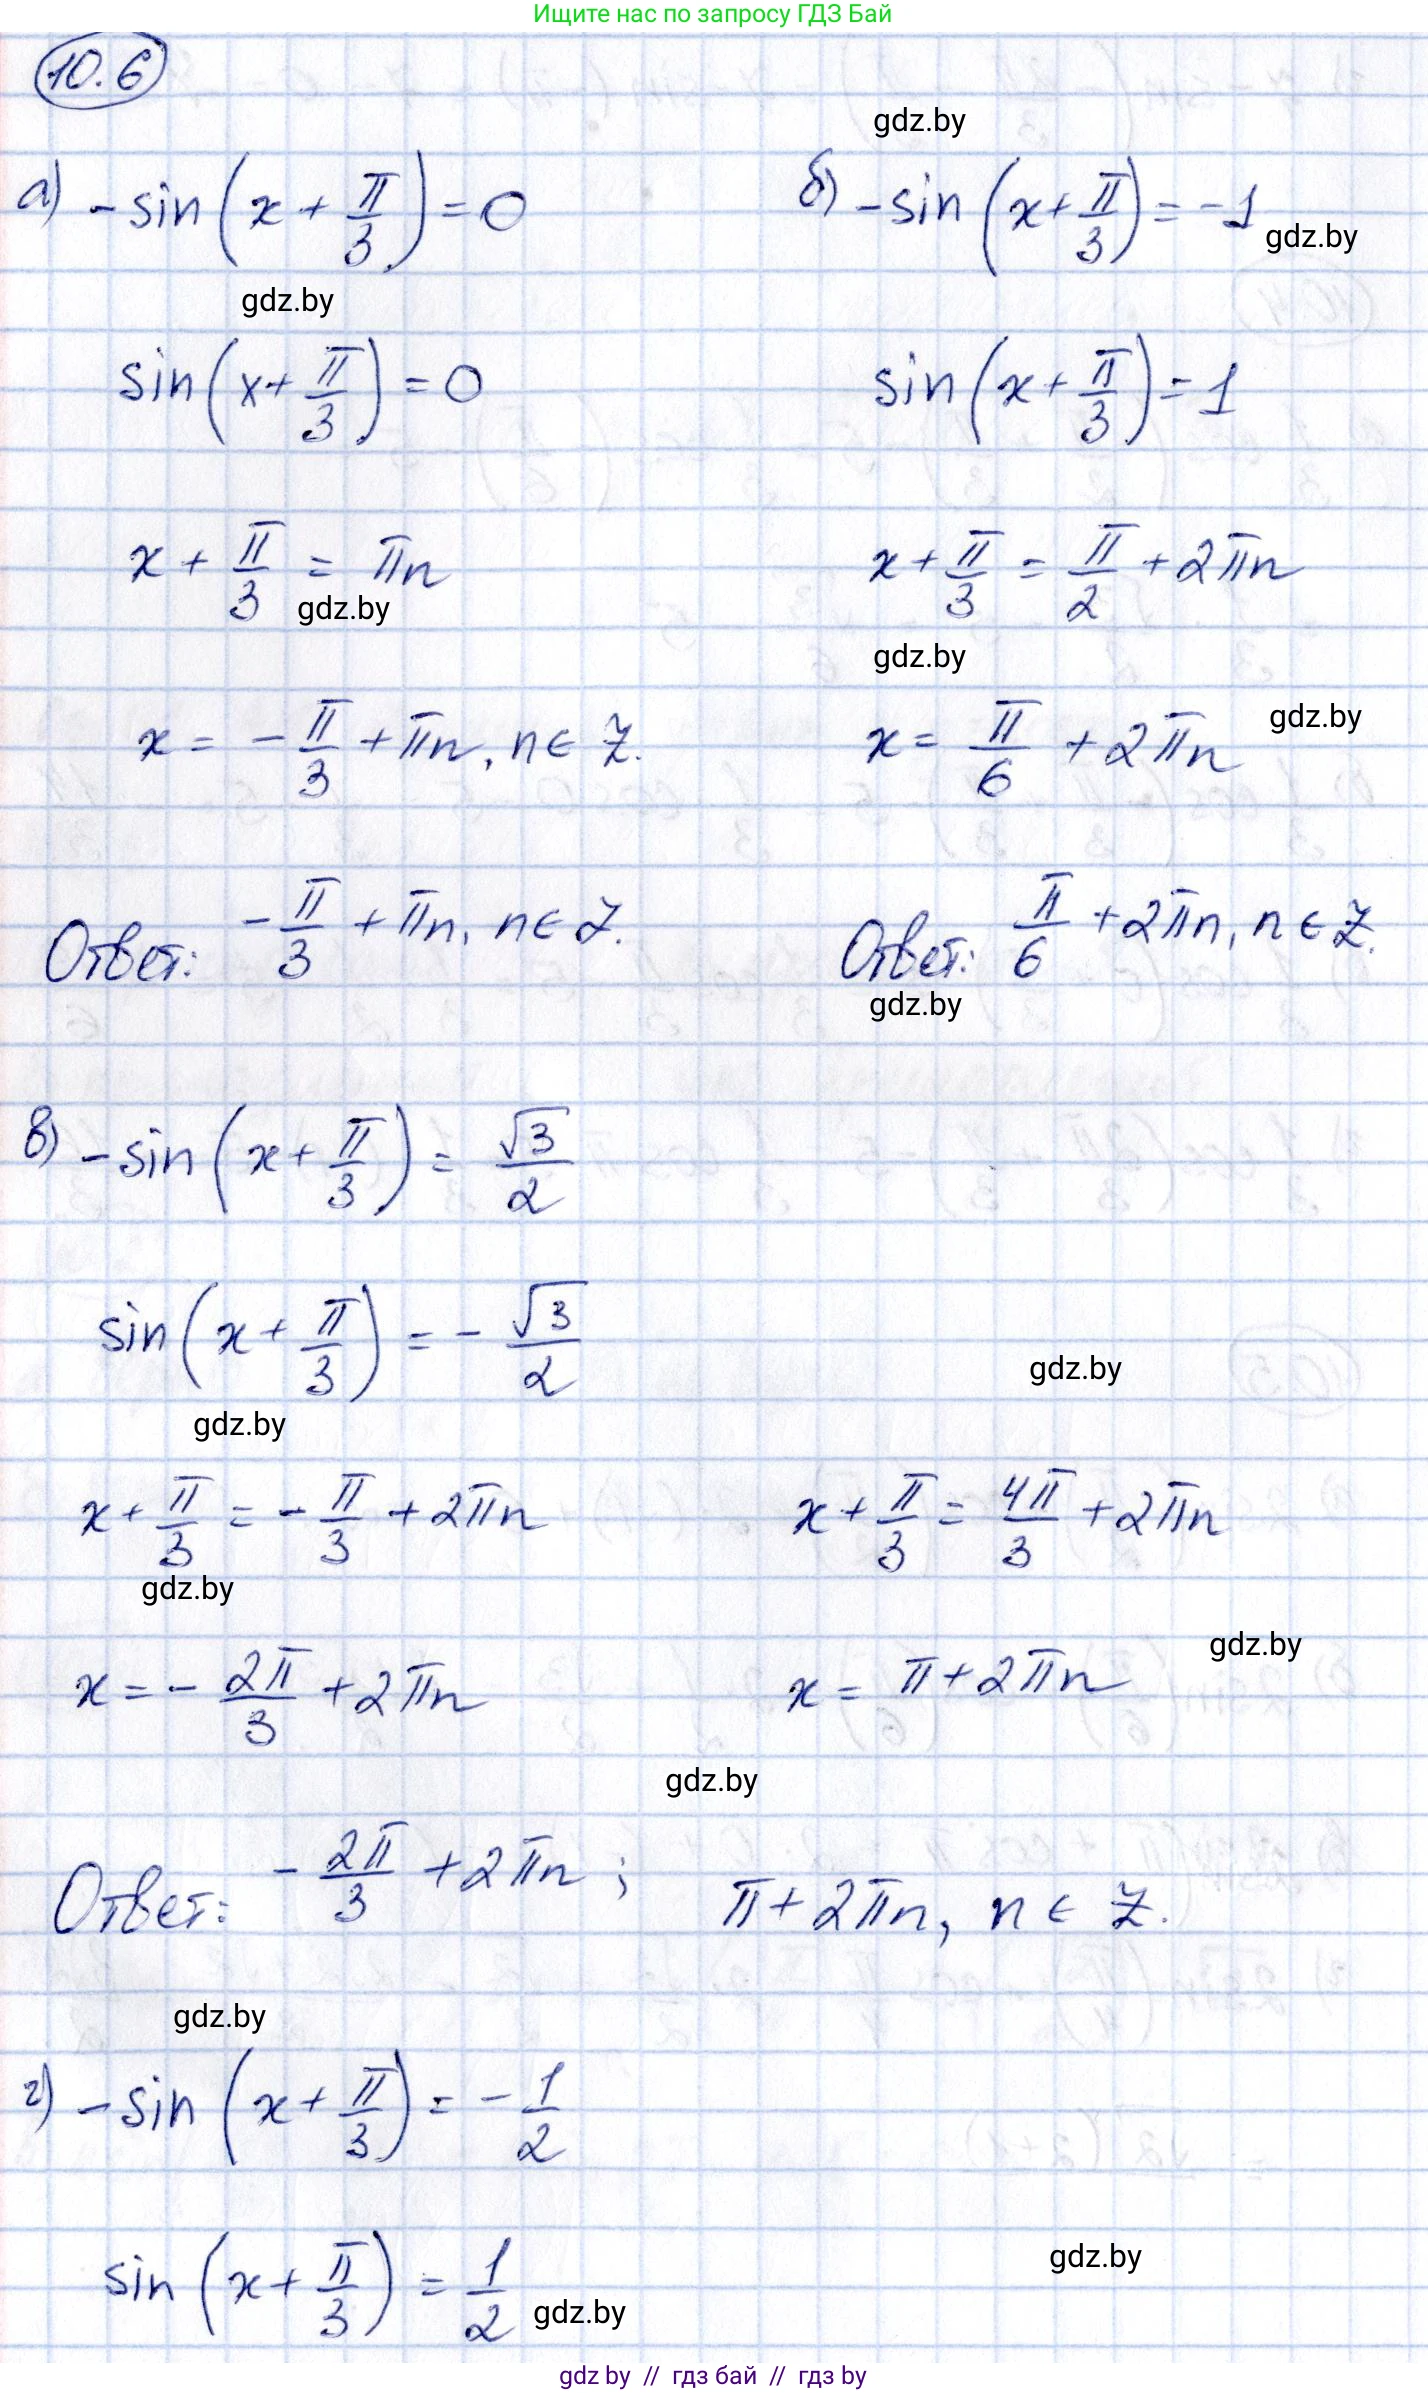 Ищите нас по запросу ГДЗ Бай
10.6
gdz.by
а) -sin(x + π/3) = 0
б) -sin(x + π/3) = -1
gdz.by
gdz.by
sin(x + π/3) = 0
sin(x + π/3) = 1
x + π/3 = πn
x + π/3 = π/2 + 2πn
gdz.by
gdz.by
x = -π/3 + πn, n ∈ Z.
x = π/6 + 2πn
gdz.by
Ответ: -π/3 + πn, n ∈ Z.
Ответ: π/6 + 2πn, n ∈ Z.
gdz.by
в) -sin(x + π/3) = √3/2
sin(x + π/3) = -√3/2
gdz.by
gdz.by
x + π/3 = -π/3 + 2πn
x + π/3 = 4π/3 + 2πn
gdz.by
gdz.by
x = -2π/3 + 2πn
x = π + 2πn
gdz.by
Ответ: -2π/3 + 2πn; π + 2πn, n ∈ Z.
gdz.by
г) -sin(x + π/3) = -1/2
gdz.by
sin(x + π/3) = 1/2
gdz.by
gdz by // гдз бай // гдз by